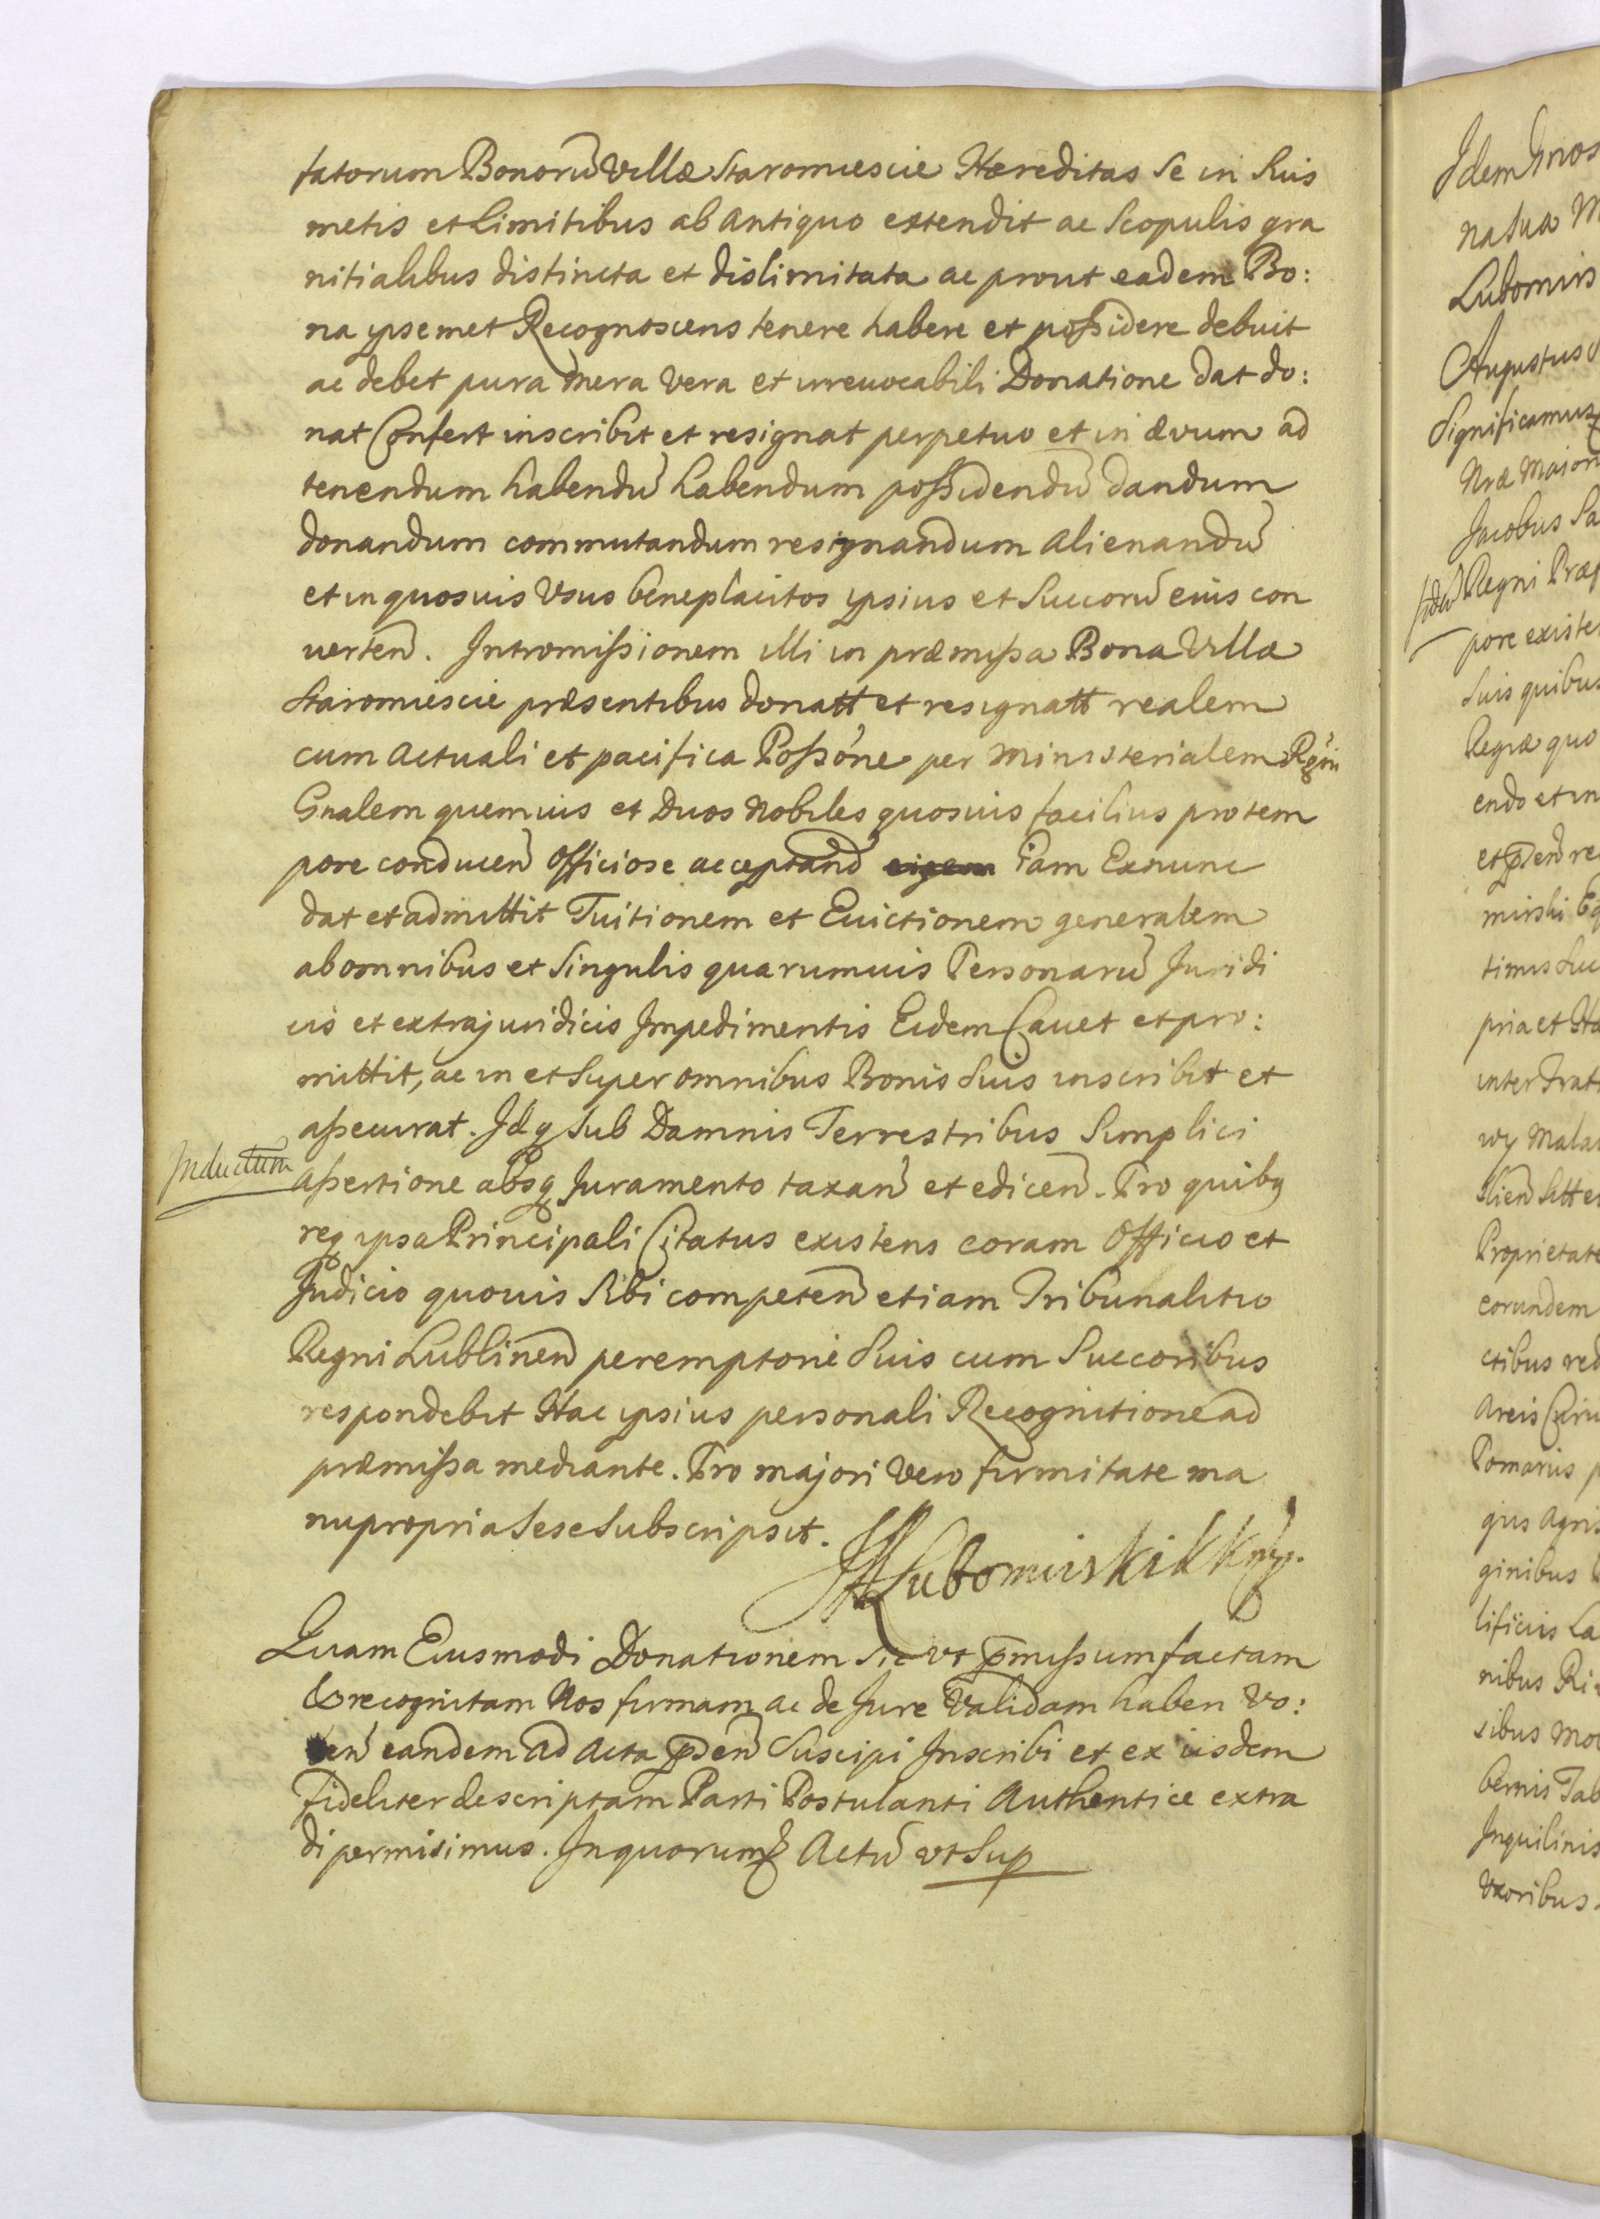 fatorum Bonorū Villæ Staromiescie Hæreditas Se in Suis
metis et Limitibus ab Antiquo extendit ac Scopulis gra
nitialibus distincta et dislimitata ac prout eadem Bo:
na ipsemet Recognoscens tenere habere et possidere debuit
ac debet pura Mera Vera et irreuocabili Donatione dat do:
nat Confert inscribit et resignat perpetuo et in ævum ad
tenendum habendū habendum possidendū dandum
donandum commutandum resignandum Alienandū
et in quosuis Vsus beneplacitos ipsius et Succorū eius con
uerten̄. Intromissionem illi in præmissa Bona Villæ
Staromiescie præsentibus donatt et resignatt realem
cum Actuali et pacifica Possōne per Ministerialem Rgni
Gnalem quemuis et Duos Nobiles quosuis facilius pro tem
pore conducen̄ Officiose acceptand̄ iam Exnunc
dat et admittit Tuitionem et Euictionem generalem
ab omnibus et Singulis quarumuis Personarū Juridi
cis et extrajuridicis Impedimentis Eidem Cauet et pro:
mittit, ac in et Super omnibus Bonis Suis inscribit et
assecurat. Idq Sub Damnis Terrestribus Simplici
Inductum
Assertione absq Juramento taxan̄ et edicen̄. Pro quibq
req ipsa Principali Citatus existens coram Officio et
Judicio quouis Sibi competen̄ etiam Tribunalitio
Regni Lublinen̄ peremptorie Suis cum Succoribus
respondebit Hac ipsius personali Recognitione ad
præmissa mediante. Pro majori Vero firmitate ma
nu propria Sese Subscripsit.
Lubomirski KK mp.
Quam Eiusmodi Donationem Sic vt p̄missum factam
& recognitam Nos firmam ac de Jure Validam haben Vo:
len̄ eandem Ad Acta p̄sen̄ Suscipi Inscribi et ex iisdem
fideliter descriptam Parti Postulanti Authentice extra
di permisimus. In quorum Actū vt Sup
Idem
Lubomirs
Augustus
Significamus
Nræ Maior
Jacobus Sa
Regni Præf
pore existe
Suis quibus
Regiæ quo
endo et in
mirski Eq
timis Suc
pria et Hæ
inter Frat
Proprietate
eorundem
ctibus red
Areis
Pomariis p
ginibus
nibus Ri
bernis Tab
Inquilinis
Vxoribus